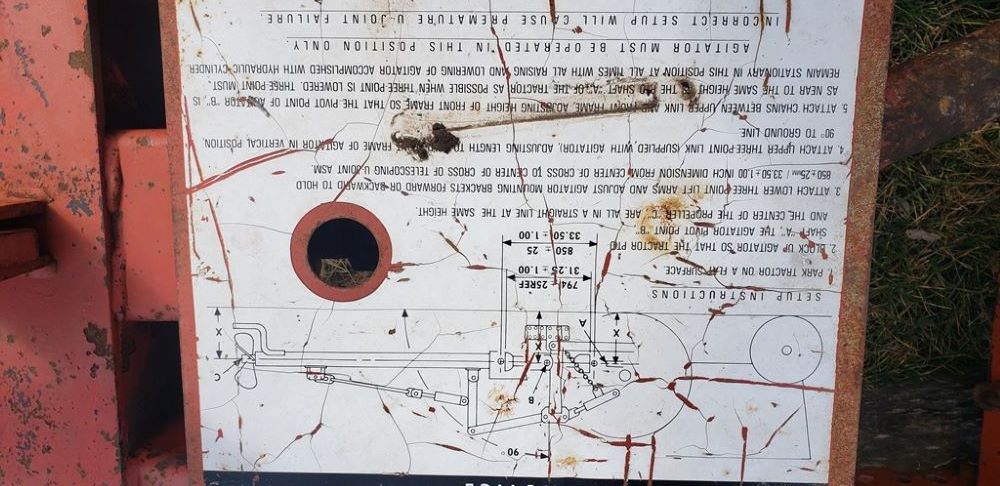 90°
B
C
X
X
A
X
794 ± 25REF
31.25 ± 1.00
850 ± 25
33.50 ± 1.00
SETUP INSTRUCTIONS
1. PARK TRACTOR ON A FLAT SURFACE.
2. BLOCK UP AGITATOR SO THAT THE TRACTOR PTO
SHAFT "A", THE AGITATOR PIVOT POINT "B",
AND THE CENTER OF THE PROPELLER "C", ARE ALL IN A STRAIGHT LINE AT THE SAME HEIGHT.
3. ATTACH LOWER THREE-POINT LIFT ARMS AND ADJUST AGITATOR MOUNTING BRACKETS FORWARD OR BACKWARD TO HOLD
850 ± 25mm/ 33.50 ± 1.00 INCH DIMENSION FROM CENTER OF CROSS TO CENTER OF CROSS OF TELESCOPING U-JOINT ASM
4. ATTACH UPPER THREE-POINT LINK (SUPPLIED WITH AGITATOR), ADJUSTING LENGTH FRAME OF AGITATOR IN VERTICAL POSITION,
90° TO GROUND LINE
5. ATTACH CHAINS BETWEEN UPPER LINK AND FRONT FRAME, ADJUSTING HEIGHT OF FRONT FRAME SO THAT THE PIVOT POINT OF AGITATOR "B", IS
AS NEAR TO THE SAME HEIGHT AS THE PTO SHAFT "A" OF THE TRACTOR AS POSSIBLE WHEN THREE-POINT IS LOWERED. THREE POINT MUST
REMAIN STATIONARY IN THIS POSITION AT ALL TIMES WITH ALL RAISING AND LOWERING OF AGITATOR ACCOMPLISHED WITH HYDRAULIC CYLINDER
AGITATOR MUST BE OPERATED IN THIS POSITION ONLY.
INCORRECT SETUP WILL CAUSE PREMATURE U-JOINT FAILURE.